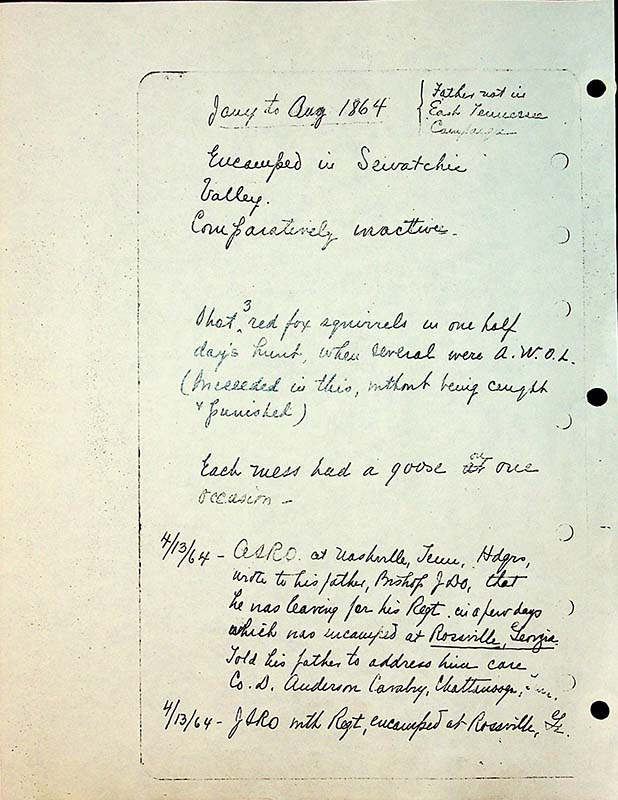 Jany to Aug 1864
Father not in
East Tennessee
Campaign
Encamped in Sewatchie
Valley.
Comparatively inactive.
Shot 3 red fox squirrels in one half
day's hunt, when several were A.W.O.L.
(Succeeded in this, without being caught
& punished)
Each mess had a goose on one
occasion —
4/13/64 - at Nashville, Tenn, Hdqrs,
wrote to his father, Bishop JDO, that
he was leaving for his Regt. in a few days
which was encamped at Rossville, Georgia.
Told his father to address him care
Co. D. Anderson Cavalry, Chattanooga,
4/13/64 - JSRO with Regt, encamped at Rossville, Ga.